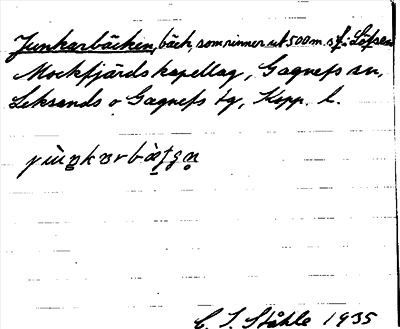 Junkarbäcken, bäck, som rinner ut 500 m. s.f. Läfsen
Mockfjärds kapellag, Gagnefs sn,
Leksands o Gagnefs tg, Kopp. l.
C. I. Ståhle 1935